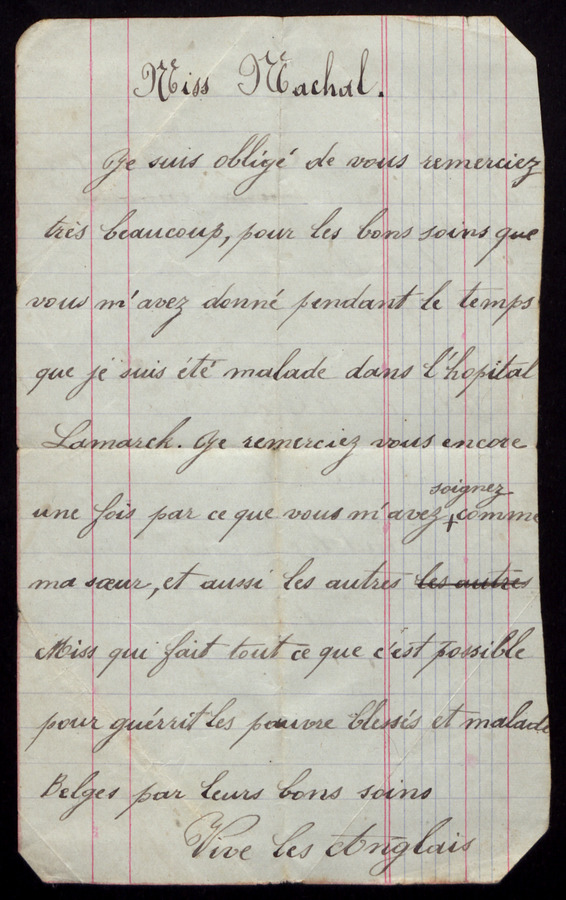 Miss Nachal.
Je suis obligé de vous remerciez
très beaucoup, pour les bons soins que
vous m'avez donné pendant le temps
que je suis été malade dans l'hopital
Lamarck. Je remerciez vous encore
soignez
une fois par ce que vous m'avez + comme
ma sœur, et aussi les autres les autres
Miss qui fait tout ce que c'est possible
pour guérrit les pauvre blessés et malade
Belges par leurs bons soins
Vive les Anglais